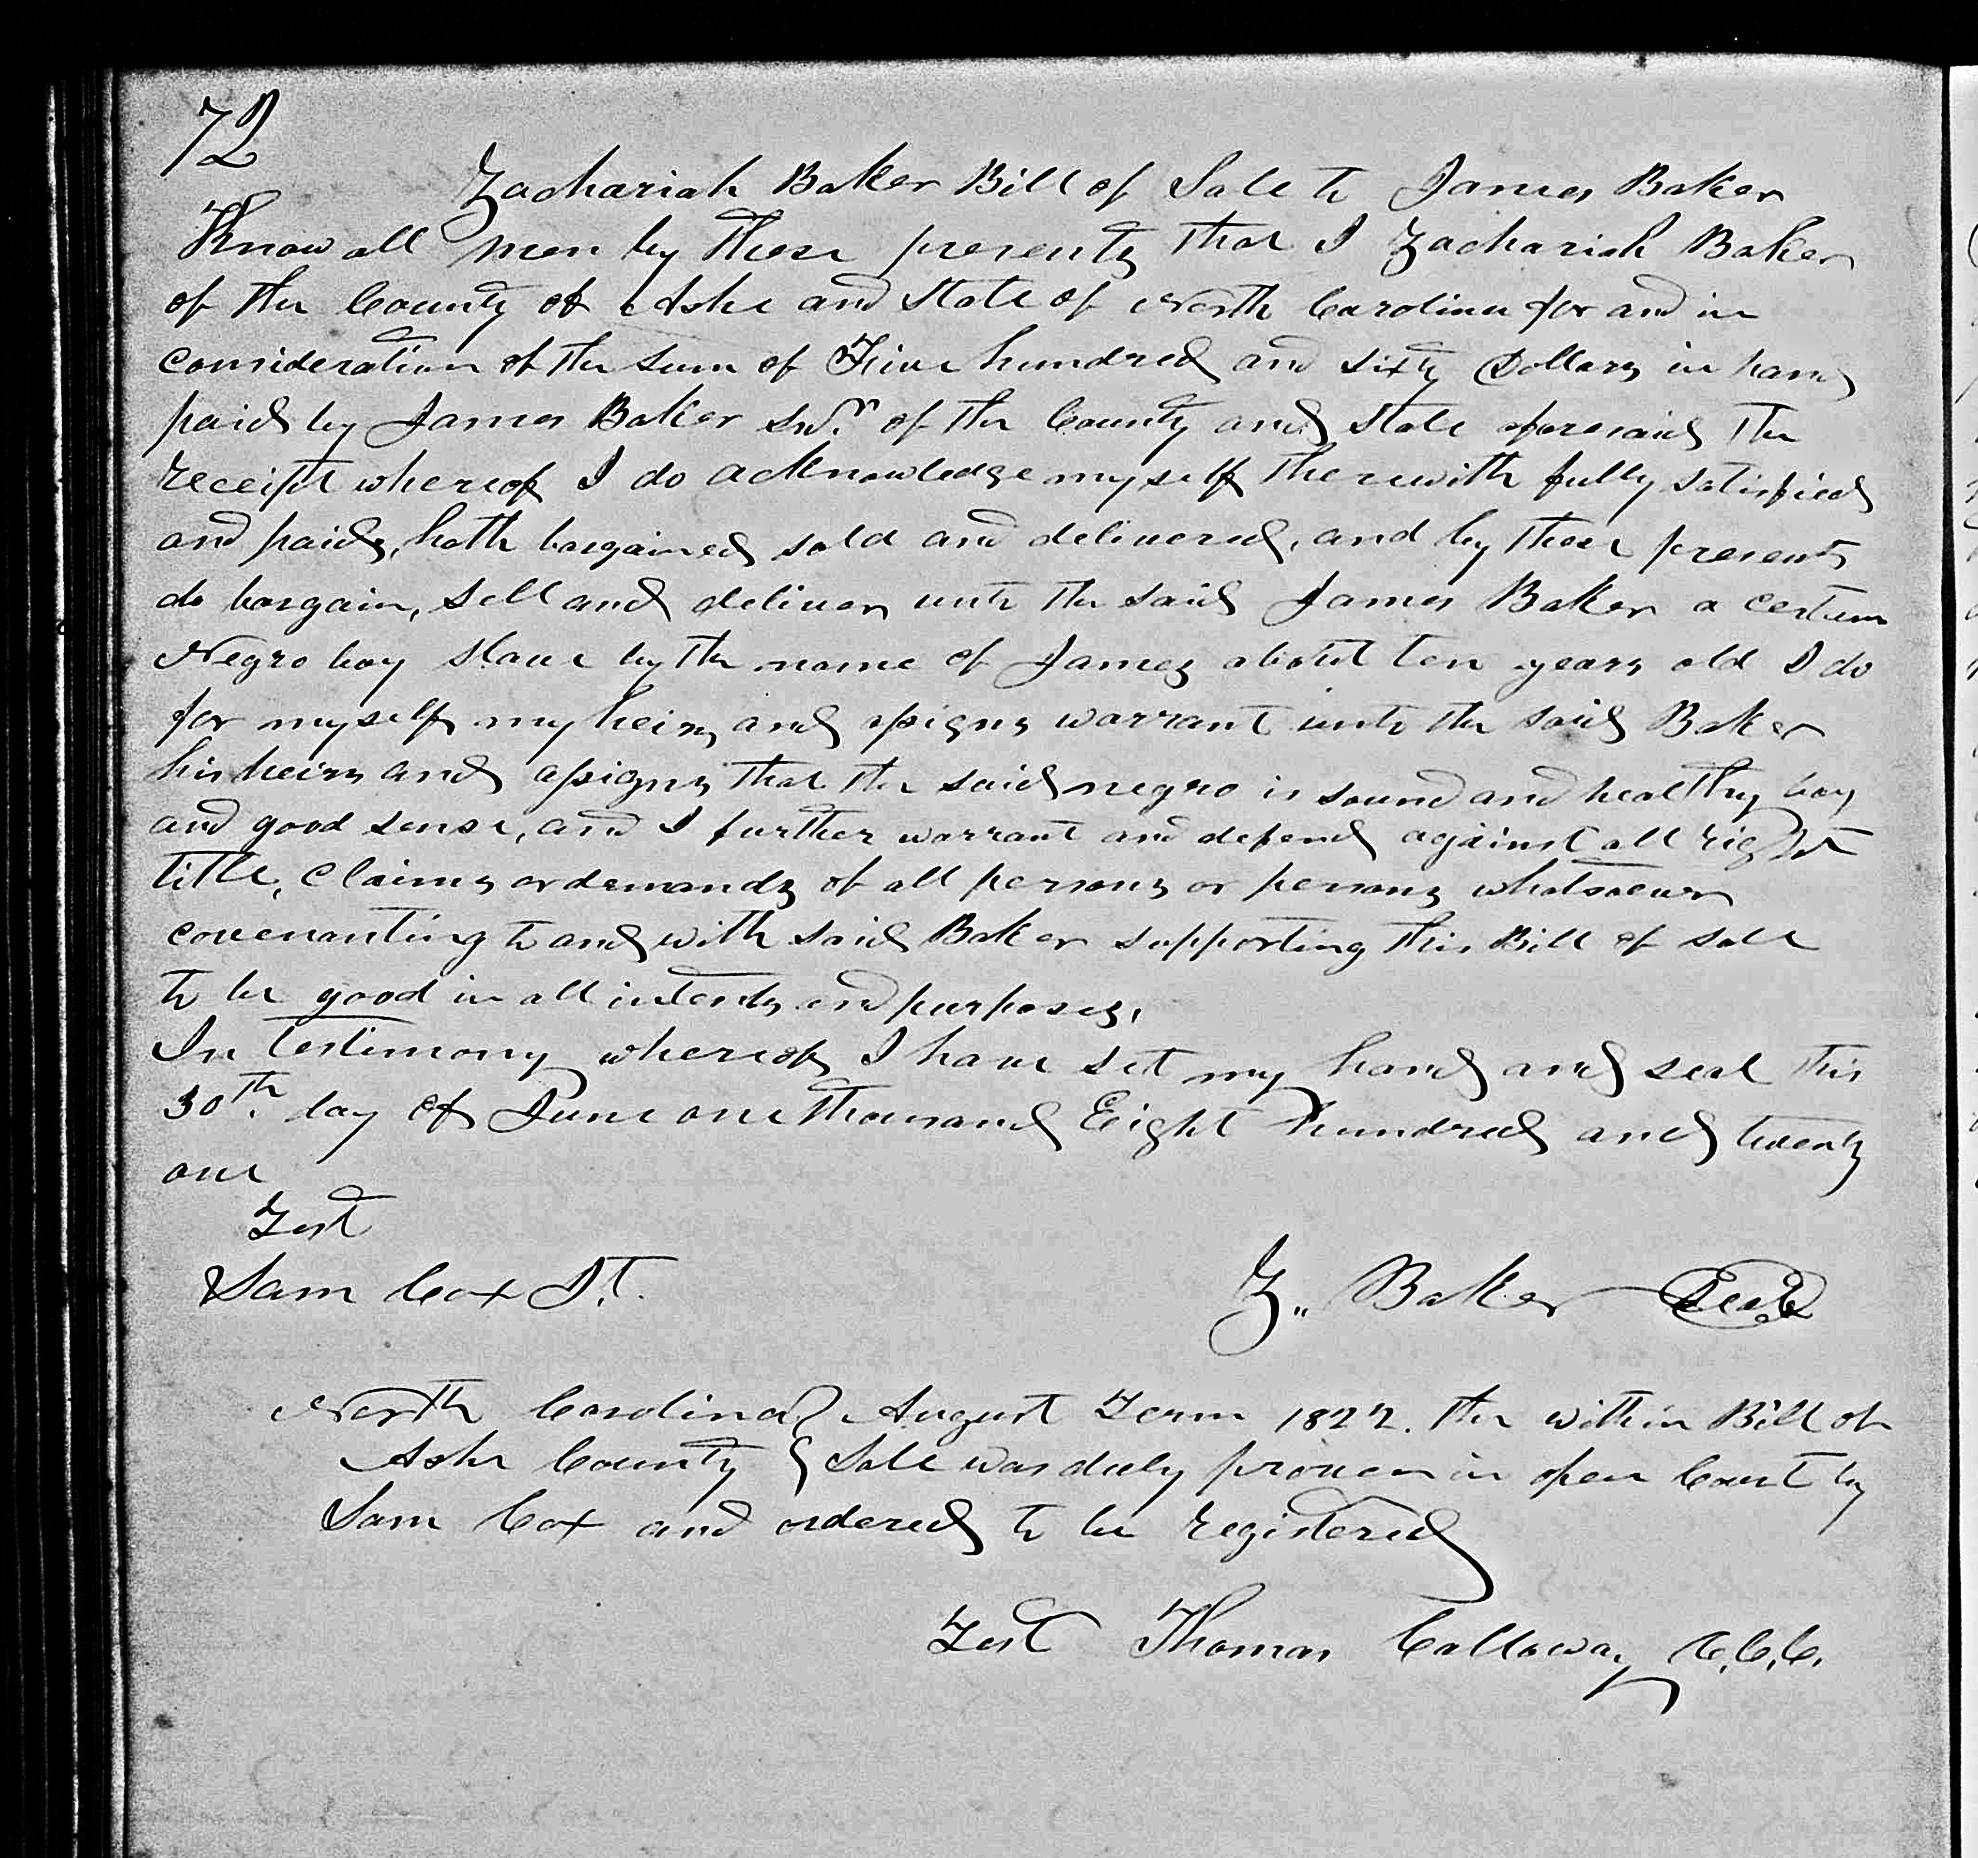 72
Zachariah Baker Bill of Sale to James Baker
Know all men by these presents that I Zachariah Baker
of the County of Ashe and State of North Carolina for and in
consideration of the sum of Five hundred and sixty Dollars in hand
paid by James Baker Snr. of the County and State aforesaid the
receipt whereof I do acknowledge myself therewith fully satisfied
and paid, hath bargained sold and delivered, and by these presents
do bargain, sell and deliver unto the said James Baker a certain
Negro boy slave by the name of James about ten years old I do
for myself my heirs and assigns warrant unto the said Baker
his heirs and assigns that the said negro is sound and healthy boy
and good sense, and I further warrant and defend against all right
title, claims or demands of all persons or persons whatsoever
covenanting to and with said Baker supporting this Bill of sale
to be good in all intents and purposes.
In testimony whereof I have set my hand and seal this
30th. day of June one thousand Eight hundred and twenty
one
Test
Sam Cox Jt.
Z.. Baker Seal
North Carolina August Term 1822. the within Bill of
Ashe County Sale was duly proven in open Court by
Sam Cox and ordered to be registered
Test Thomas Calloway C.C.C.